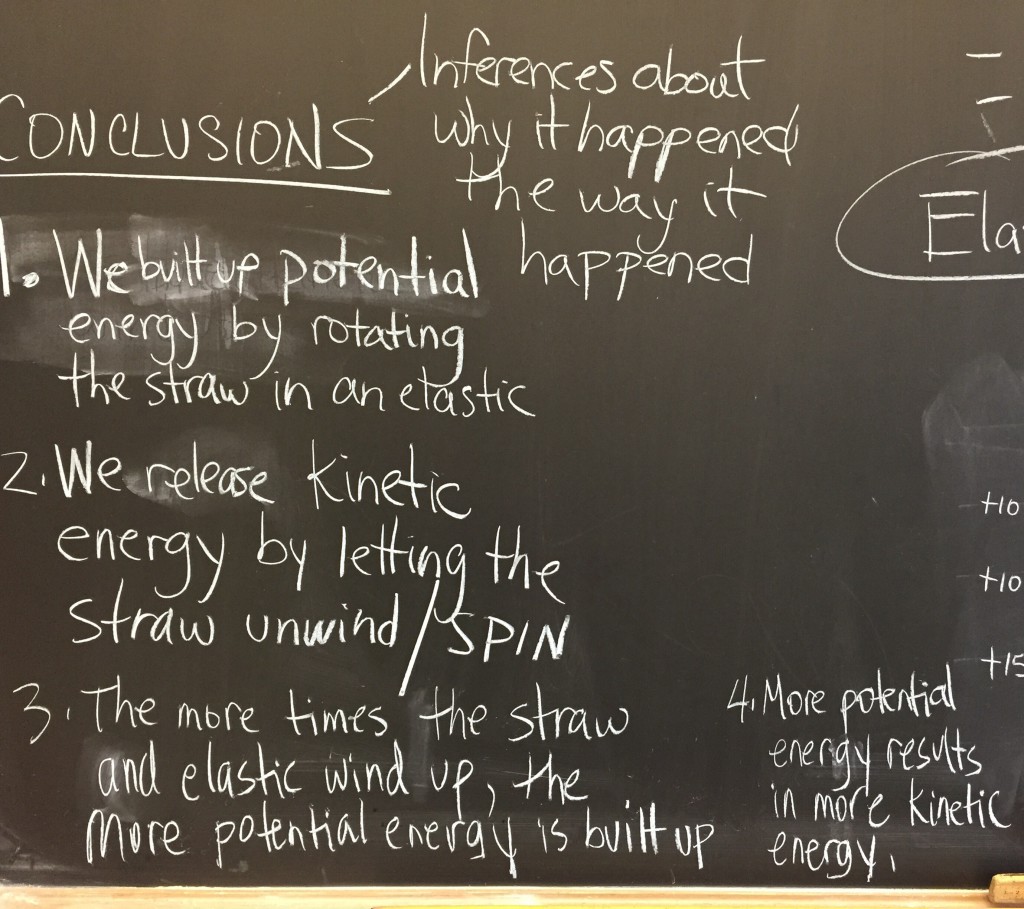 CONCLUSIONS
Inferences about
why it happened
the way it
happened
1. We built up potential
energy by rotating
the straw in an elastic
2. We release kinetic
energy by letting the
straw unwind/SPIN
3. The more times the straw
and elastic wind up, the
more potential energy is built up
4. More potential
energy results
in more kinetic
energy.
Ela
+10
+10
+15